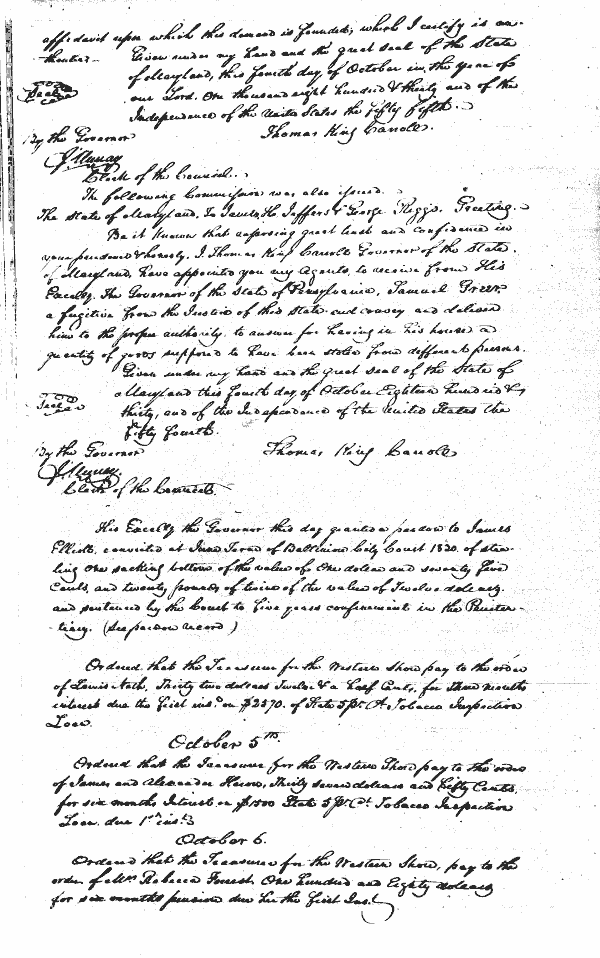 affidavit upon which this demand is founded; which I certify is au-
thentic. Given under my hand and the great seal of the State
of Maryland, this fourth day of October in the year of
our Lord. One thousand eight hundred & thirty and of the
Independence of the United States the fifty fifth.
Thomas King Carroll.
By the Governor
Clerk of the Council.
The following Commission was also issued.
The State of Maryland, To James H. Jeffers & George Riggs. Greeting.
Be it Known that reposing great trust and confidence in
your prudence & honesty. I, Thomas King Carroll Governor of the State
of Maryland, have appointed you my Agents, to receive from His
Excelcy. The Governor of the State of Pennsylvania, Samuel Green
a fugitive from the Justice of this State and convey and deliver
him to the proper authority, to answer for having in his house a
quantity of goods supposed to have been stolen from different persons.
Given under my hand and the great seal of the State of
Maryland this fourth day of October Eighteen hundred &
thirty, and of the Independence of the United States the
fifty fourth.
By the Governor Thomas King Carroll
Clerk of the Council.
His Excelcy the Governor this day granted a pardon to James
Elliott, convicted at June Term of Baltimore City Court 1830. of stea-
ling one sacking bottom of the value of One dollar and seventy five
Cents, and twenty pounds of twine of the value of Twelve dollars.
and sentenced by the Court to five years confinement in the Peniten-
tiary. (See pardon record)
Ordered that the Treasurer for the Western Shore pay to the order
of Lewis Neth, Thirty two dollars Twelve & a half Cents, for three months
interest due the first inst. on $2570. of State 5 pr. Ct. Tobacco Inspection
Loan.
October 5th.
Ordered that the Treasurer for the Western Shore pay to the order
of James and Alexander, Thirty seven dollars and fifty Cents,
for six months Interest on $1500 State 5 pr. Ct. Tobacco Inspection
Loan due 1st inst.
October 6.
Ordered that the Treasurer for the Western Shore, pay to the
order of Mrs Rebecca Forrest, One hundred and Eighty dollars
for six months pension due her the first Inst.